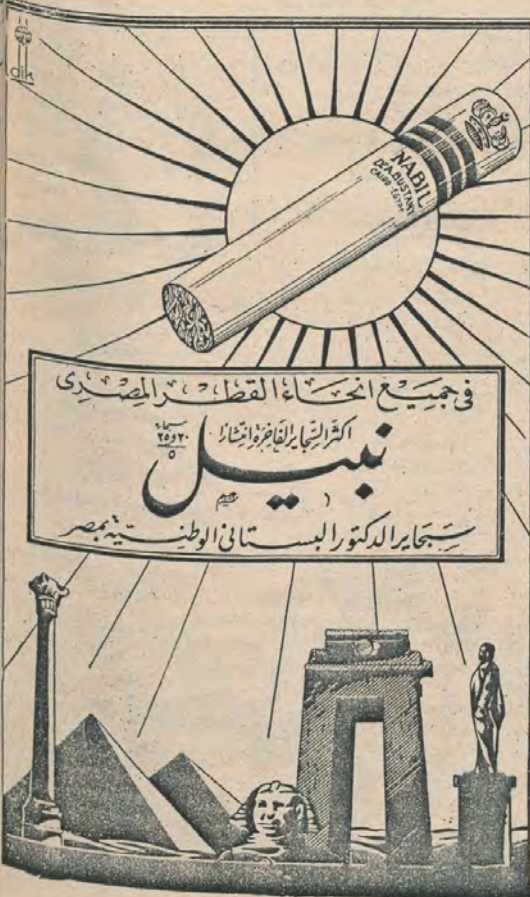 dik
NABIL
Dr. A. BUSTANY
CAIRO-EGYPT
في جميع انحاء القطر المصري
اكثر السجاير الفاخرة انتشارا
سيجارة
٢٠ و ٢٥
٥
نبيل
سجاير الدكتور البستاني الوطنية بمصر